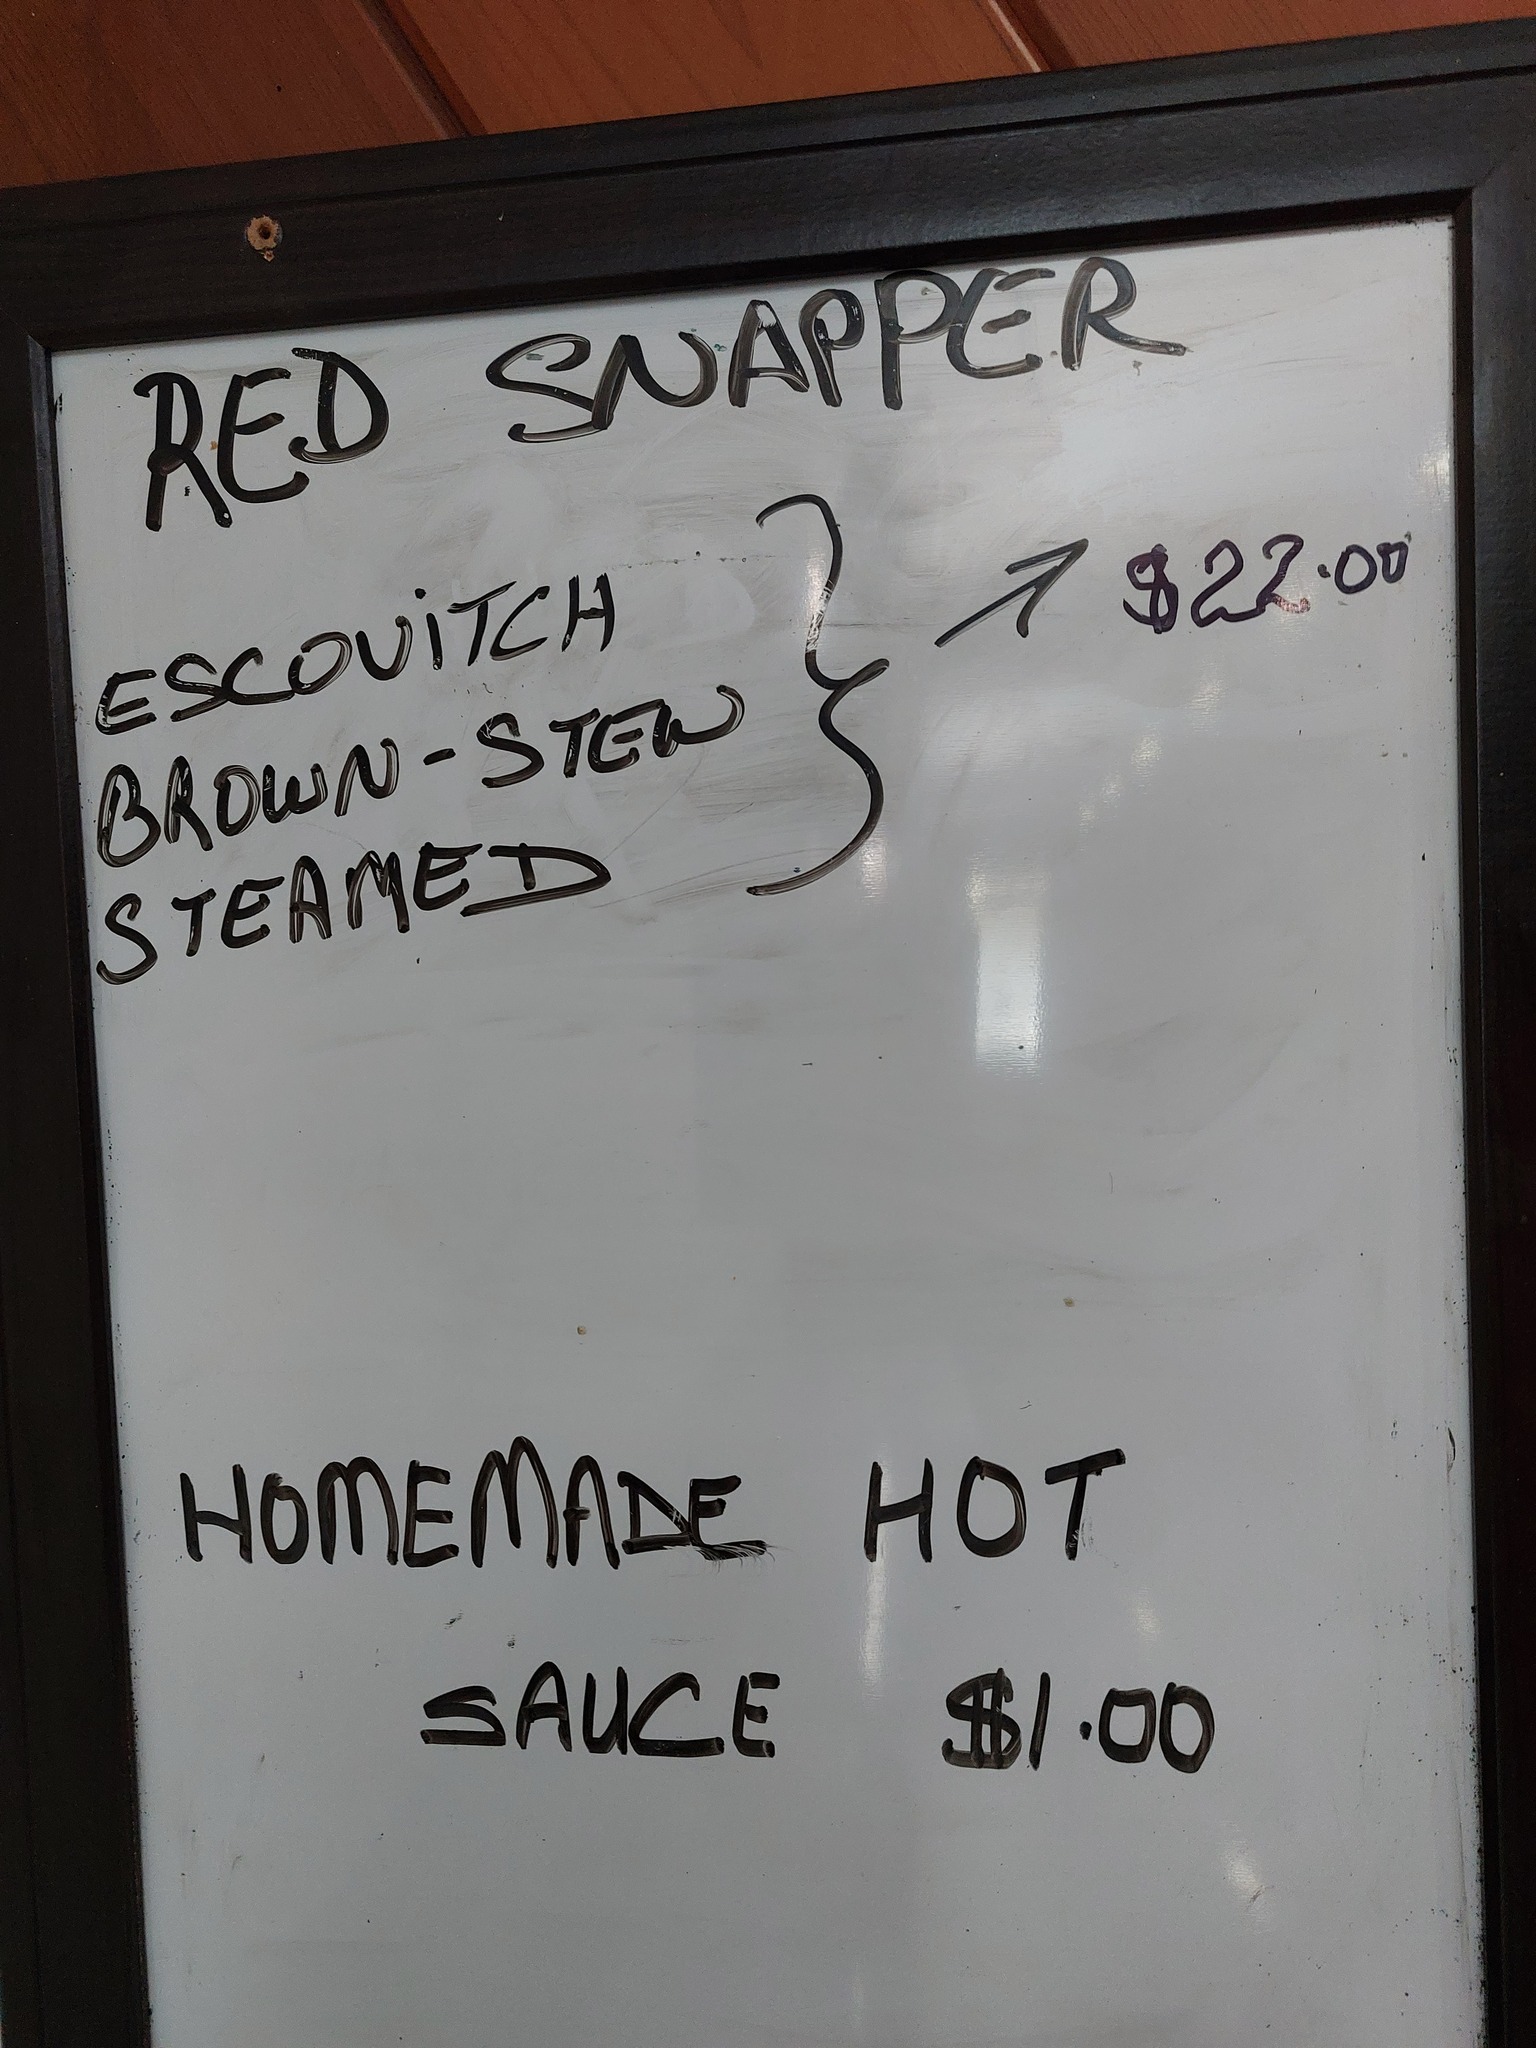 RED SNAPPER
ESCOVITCH
BROWN-STEW
STEAMED
$22.00
HOMEMADE HOT
SAUCE $1.00